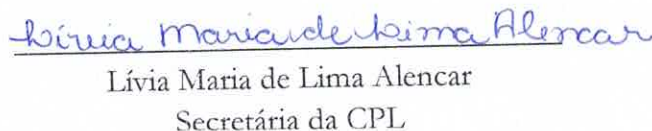 Lívia Maria de Lima Alencar
Lívia Maria de Lima Alencar
Secretária da CPL